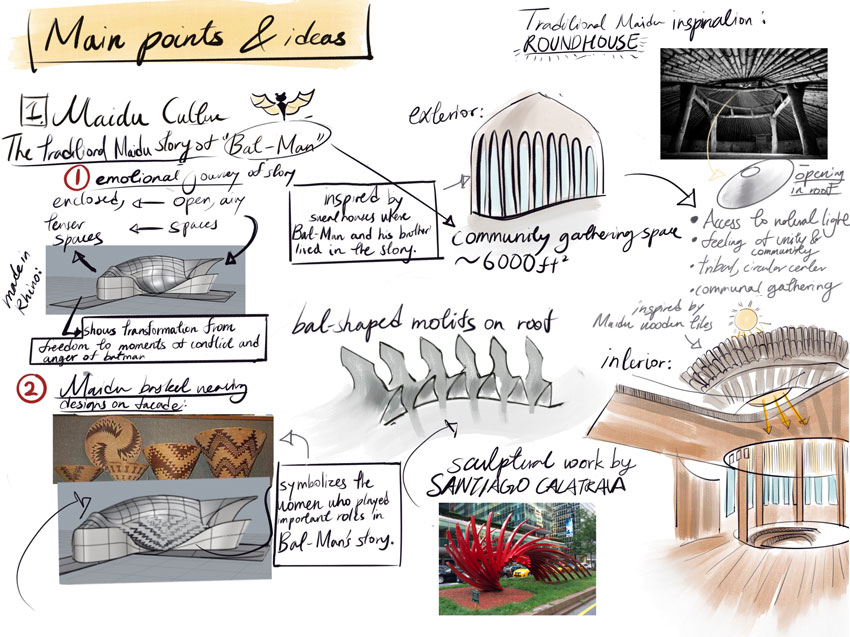 Main points & ideas
1. Maidu Culture
The traditional Maidu story of "Bat-Man"
1 emotional journey of story
enclosed, ← open, airy
tenser ← spaces
spaces
made in
Rhino:
shows transformation from
freedom to moments of conflict and
anger of batman
2 Maidu basket weaving
designs on facade:
symbolizes the
women who played
important roles in
Bat-Man's story.
exterior:
inspired by
where
Bat-Man and his brother
lived in the story.
community gathering space
~6000ft²
bat-shaped motifs on roof
sculptural work by
SANTIAGO CALATRAVA
Traditional Maidu inspiration:
ROUNDHOUSE
opening
in roof
• Access to natural light
• feeling of unity &
community
• tribal, circular center
• communal gathering
inspired by
Maidu wooden tiles
interior: